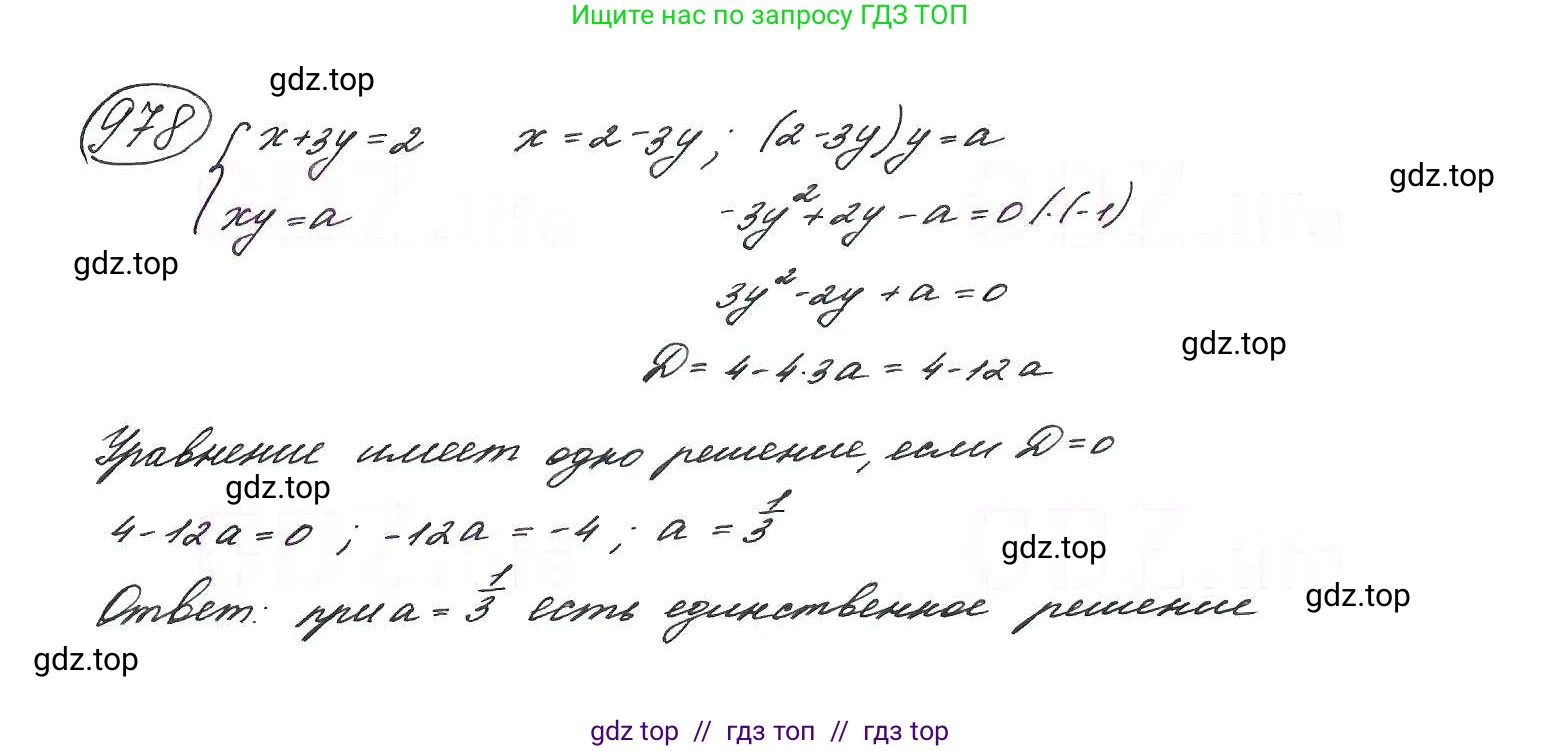 Ищите нас по запросу ГДЗ ТОП
gdz.top
978 { x+3y=2 x=2-3y; (2-3y)y=a
gdz.top
xy=a -3y²+2y-a=0 /·(-1)
gdz.top
3y²-2y+a=0
gdz.top
D=4-4·3a=4-12a
Уравнение имеет одно решение, если D=0
gdz.top
4-12a=0; -12a=-4; a=1/3
gdz.top
gdz.top
Ответ: при a=1/3 есть единственное решение
gdz.top
gdz top // гдз топ // гдз top